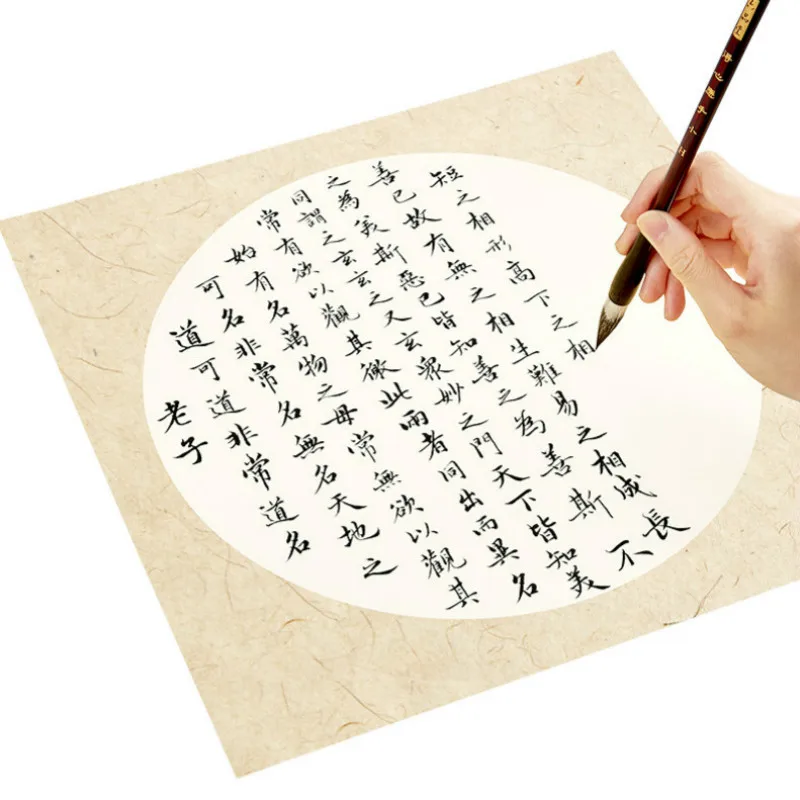 老子
道可道非常道名
可名非常名無名天地之
始有名萬物之母常無欲以觀其
常有欲以觀其徼此兩者同出而異名
同謂之玄玄之又玄眾妙之門天下皆知美
之為美斯惡已皆知善之為善斯不
善已故有無之相生難易之相成長
短之相形高下之相
得心應手